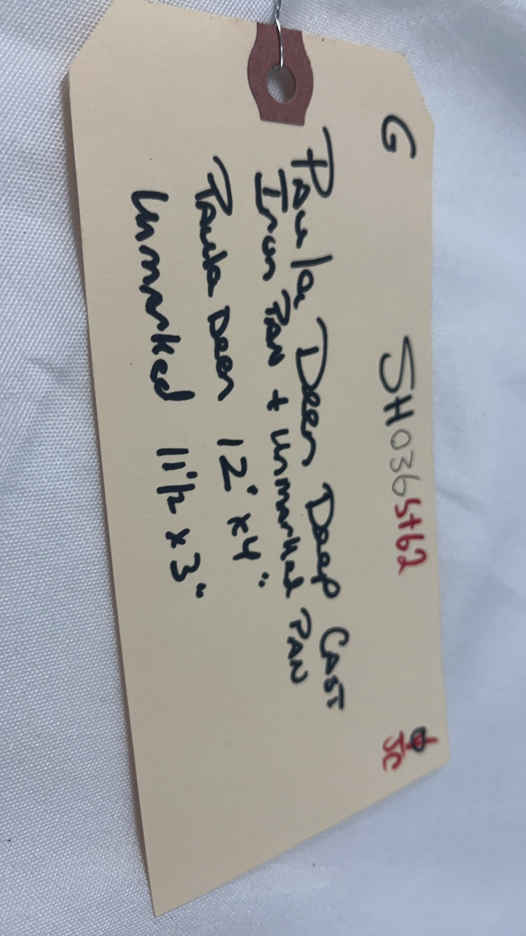 G SH0365t62 JC
Paula Deen Deep CAST
Iron PAN + unmarked PAN
Paula Deen 12" x 4"
Unmarked 11 1/2 x 3"